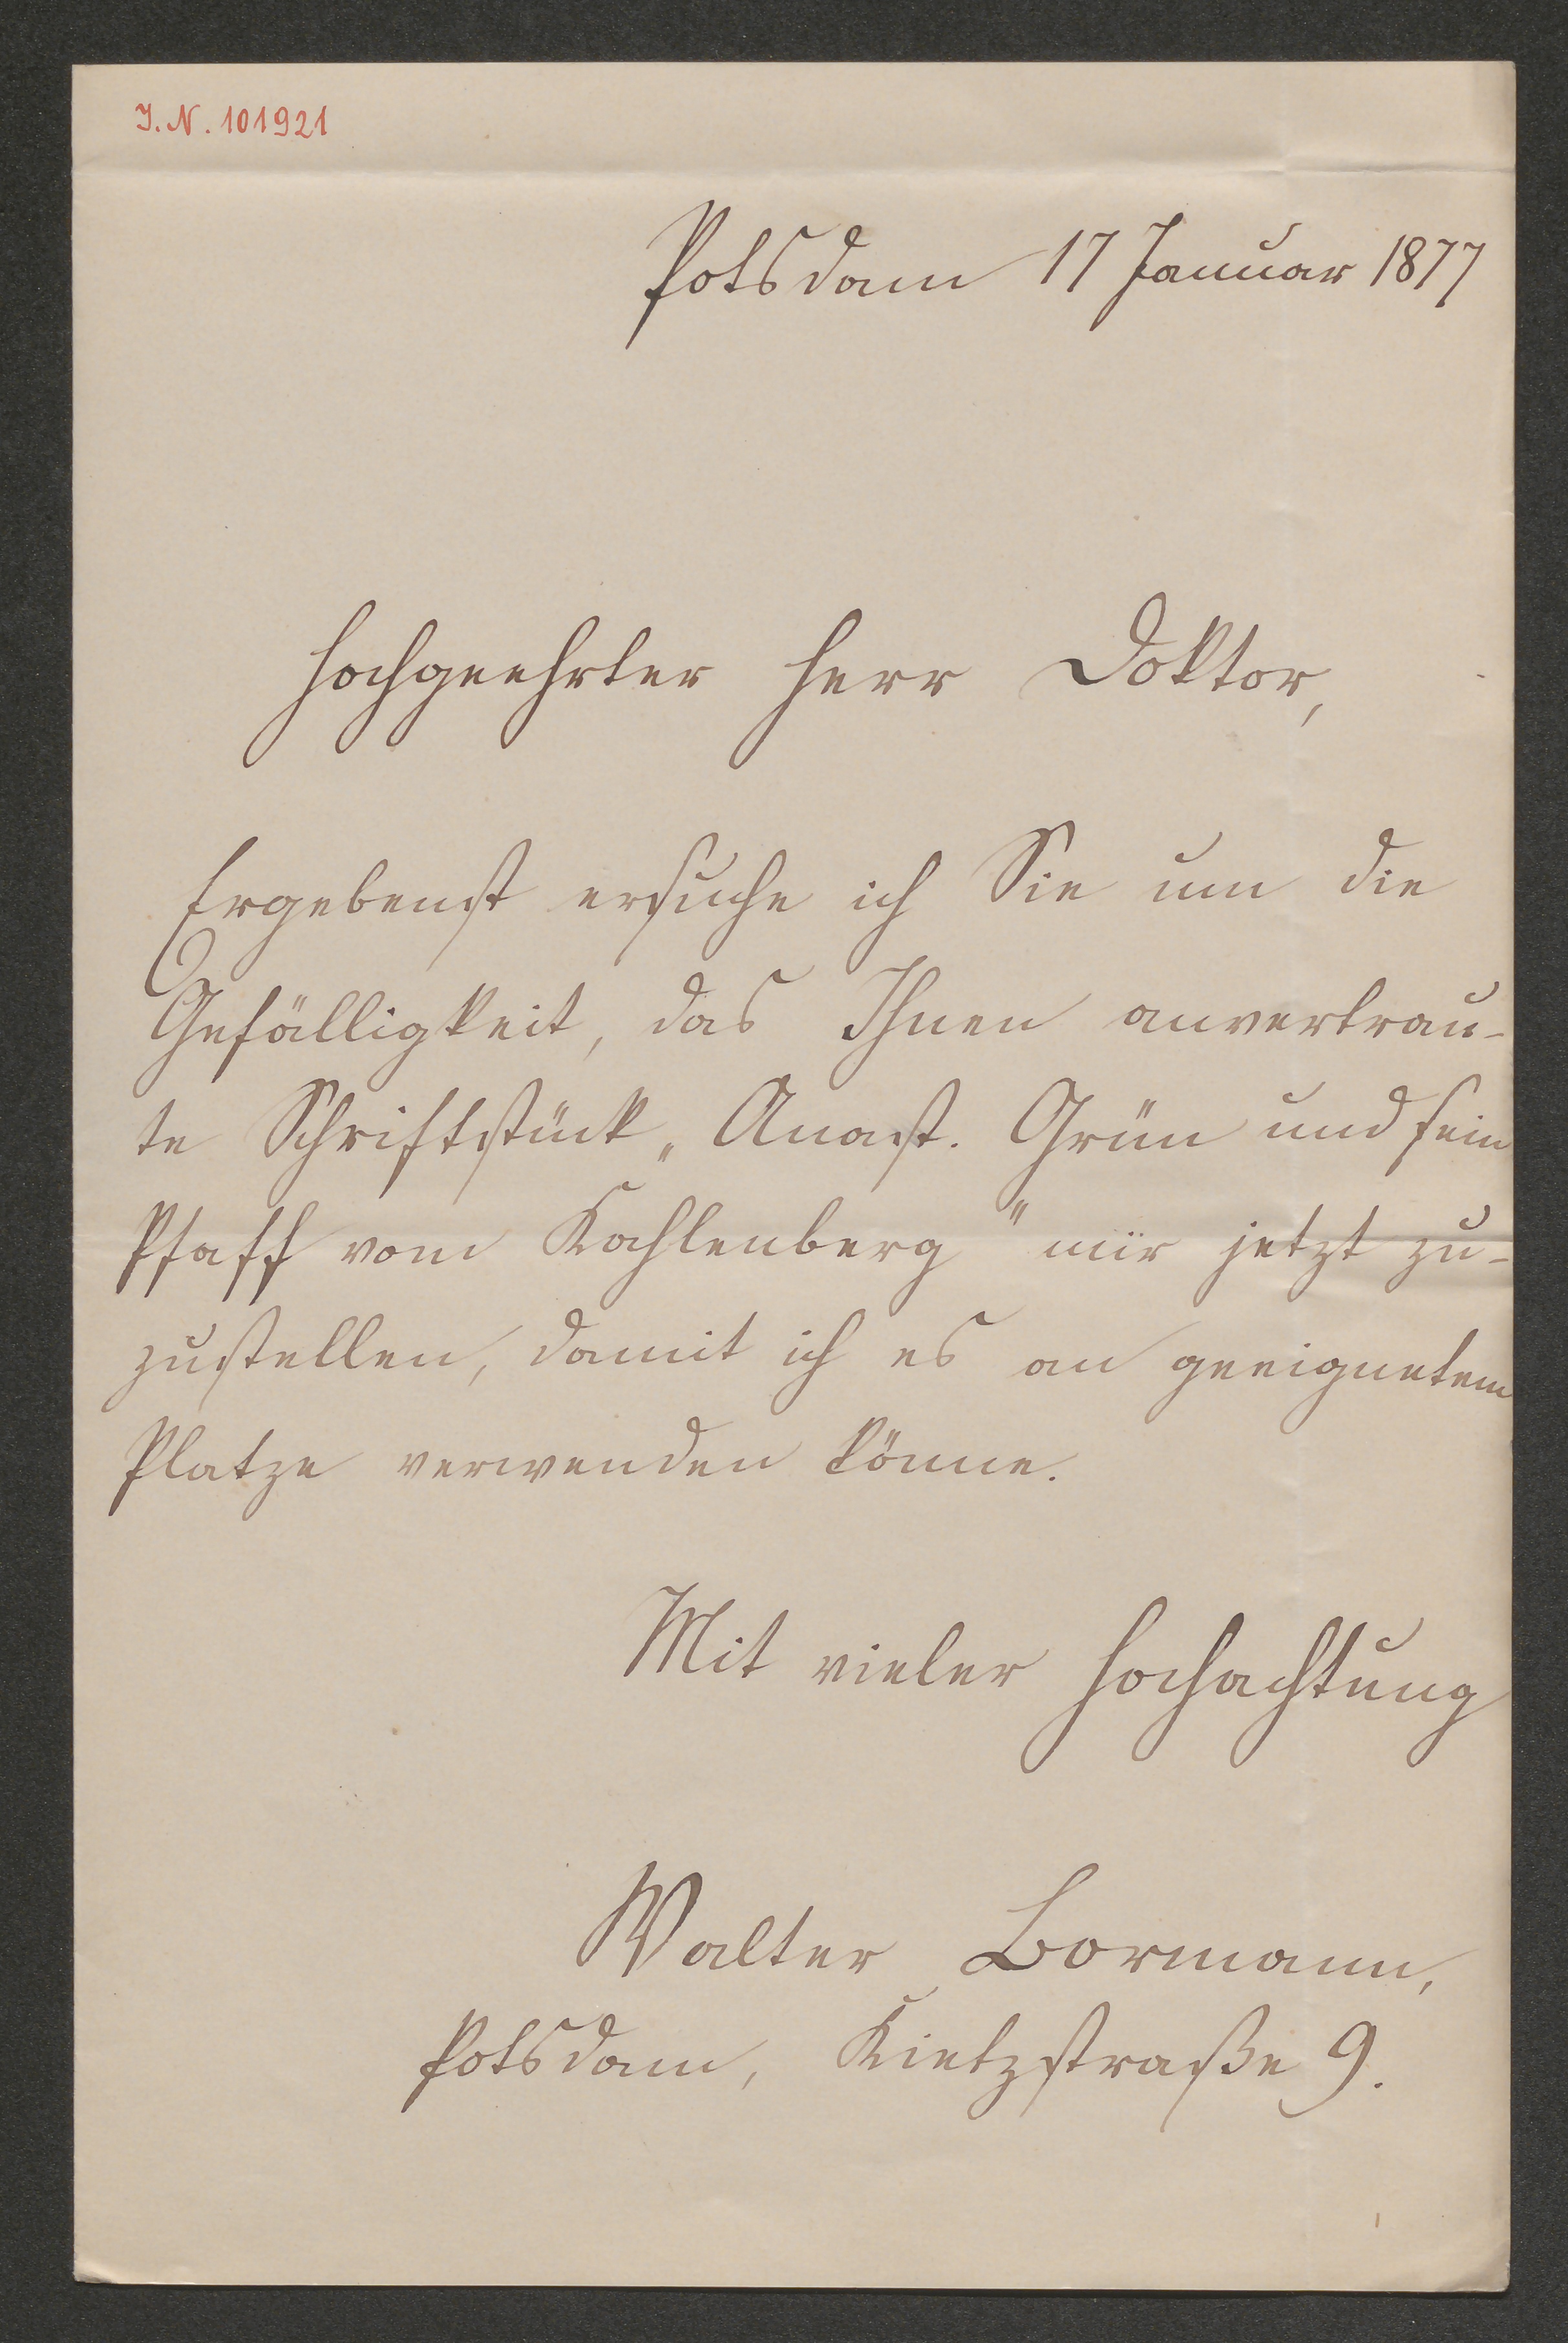 I.N. 101921
Potsdam 17 Januar 1877
Hochgeehrter Herr Doktor,
Ergebenst ersuche ich Sie um die
Gefälligkeit, das Ihnen anvertrau-
te Schriftstück „Anast. Grün und sein
Pfaff vom Kahlenberg" mir jetzt zu-
zustellen, damit ich es an geeignetem
Platze verwenden könne.
Mit vieler Hochachtung
Walter Bormann,
Potsdam, Kietzstraße 9.